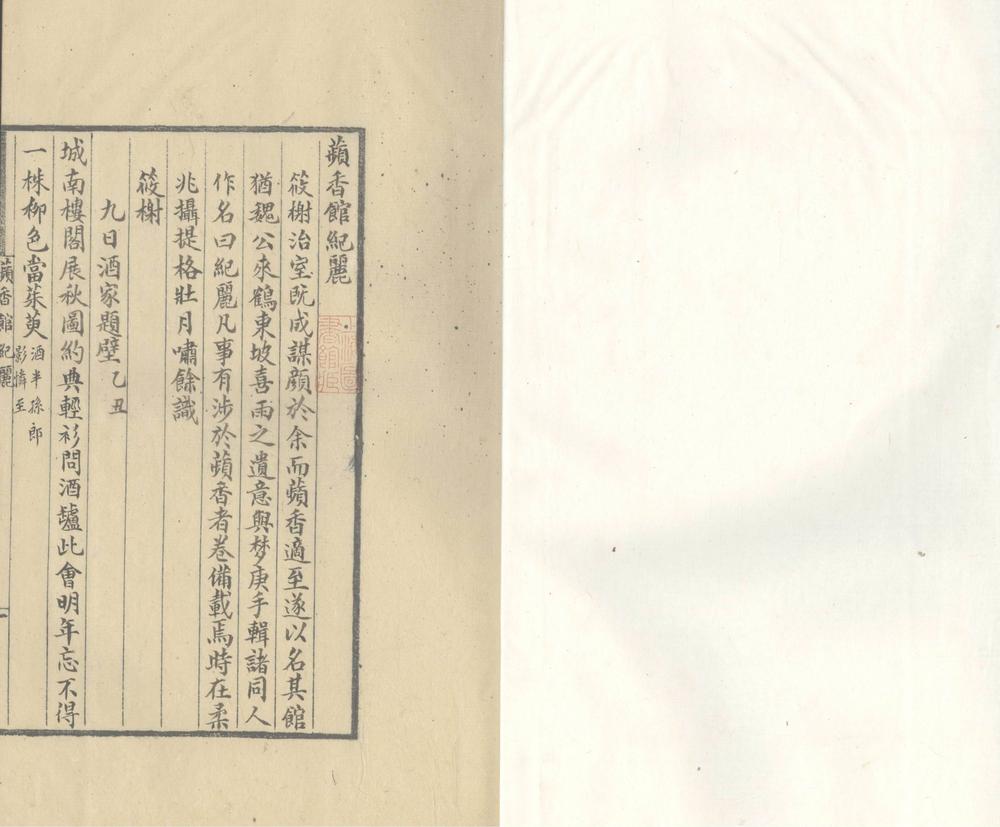 蘋香館紀麗
筱榭治室既成謀顔於余而蘋香適至遂以名其館
猶魏公來鶴東坡喜雨之遺意與梦庚手輯諸同人
作名曰紀麗凡事有涉於蘋香者卷備載焉時在柔
兆攝提格壯月嘯餘識
筱榭
九日酒家題壁乙丑
城南樓閣展秋圖約典輕衫問酒壚此會明年忘不得
一株柳色當茱萸酒半孫郎
影憐至
蘋香館紀麗